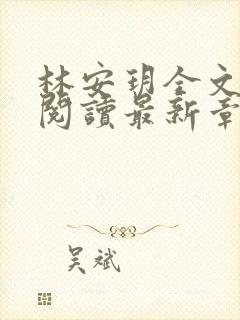 林安玥全文
閱讀最新章
吴斌